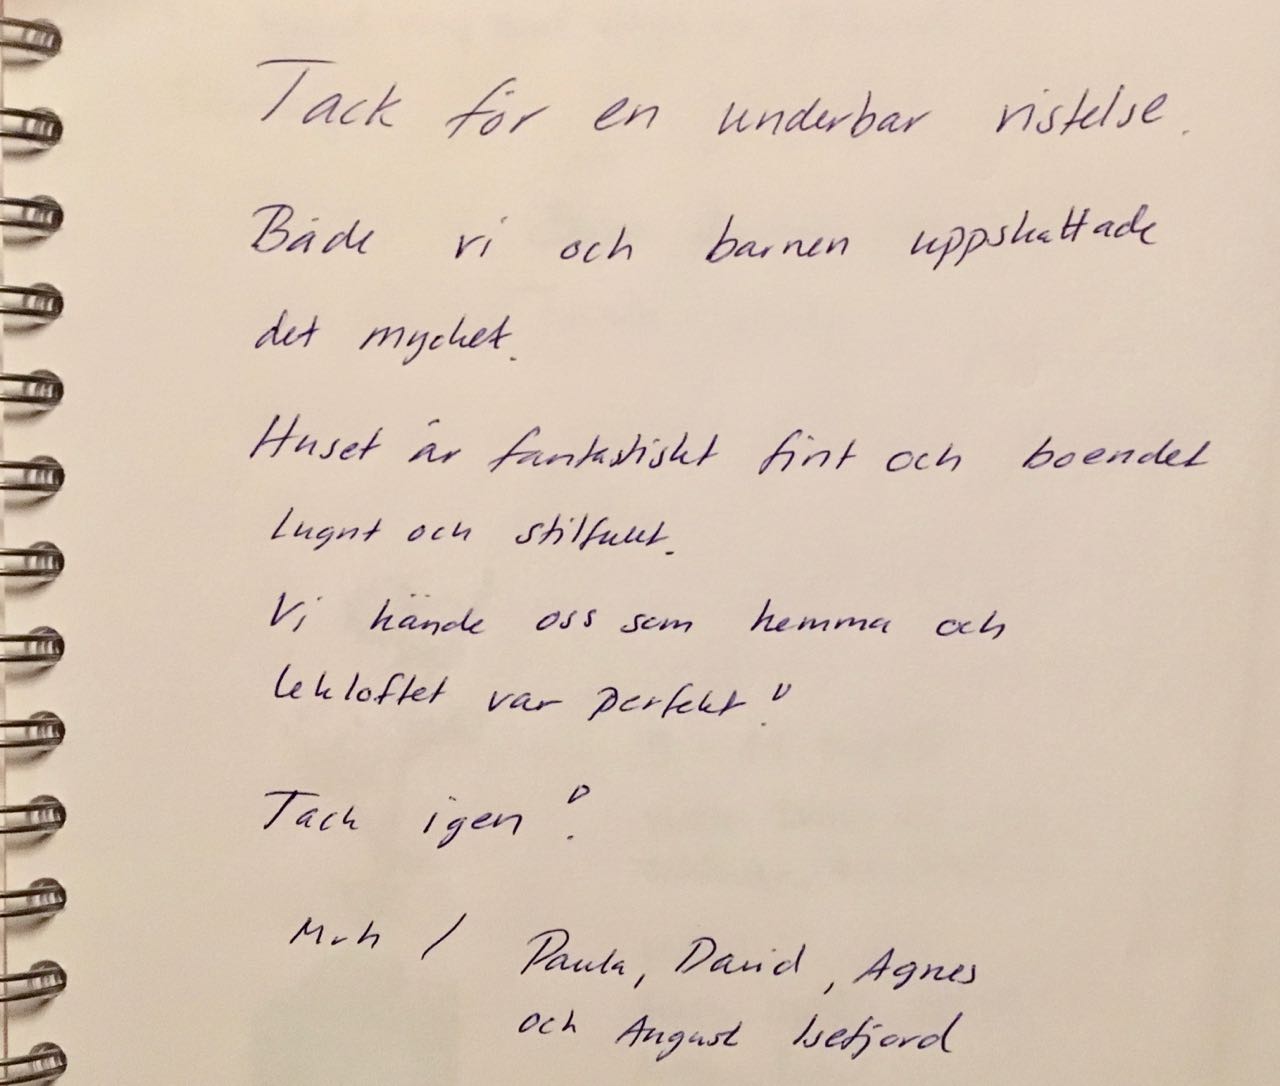 Tack för en underbar vistelse.
Både vi och barnen uppskattade
det mycket.
Huset är fantastiskt fint och boendet
lugnt och stilfullt.
Vi kände oss som hemma och
lekloftet var perfekt!
Tack igen!
Mvh / Paula, David, Agnes
och August Isefjord